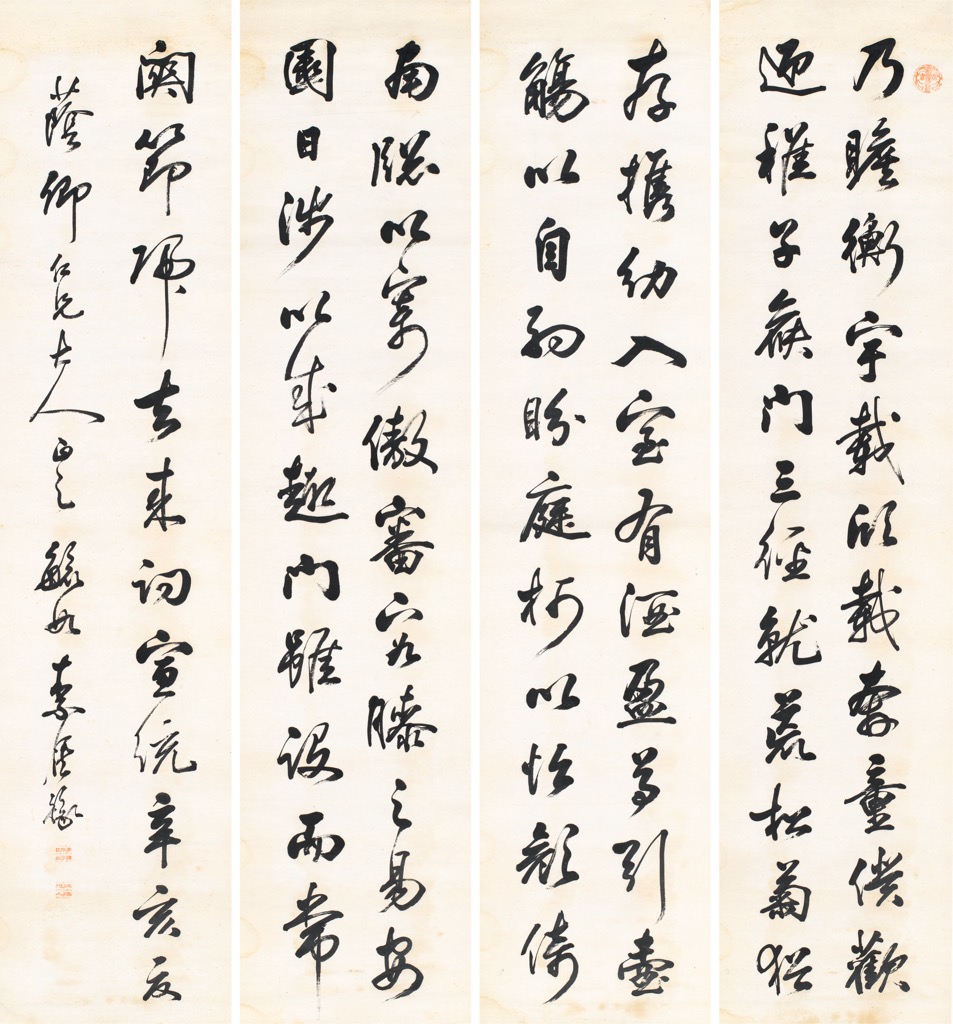 乃瞻衡宇載欣載奔童僕歡
迎稚子候門三徑就荒松菊猶
存携幼入室有酒盈尊引壺
觴以自酌眄庭柯以怡顏倚
南牕以寄傲審容膝之易安
園日涉以成趣門雖設而常
關節歸去来詞宣統辛亥夏
蔭卿仁兄大人正之毓如